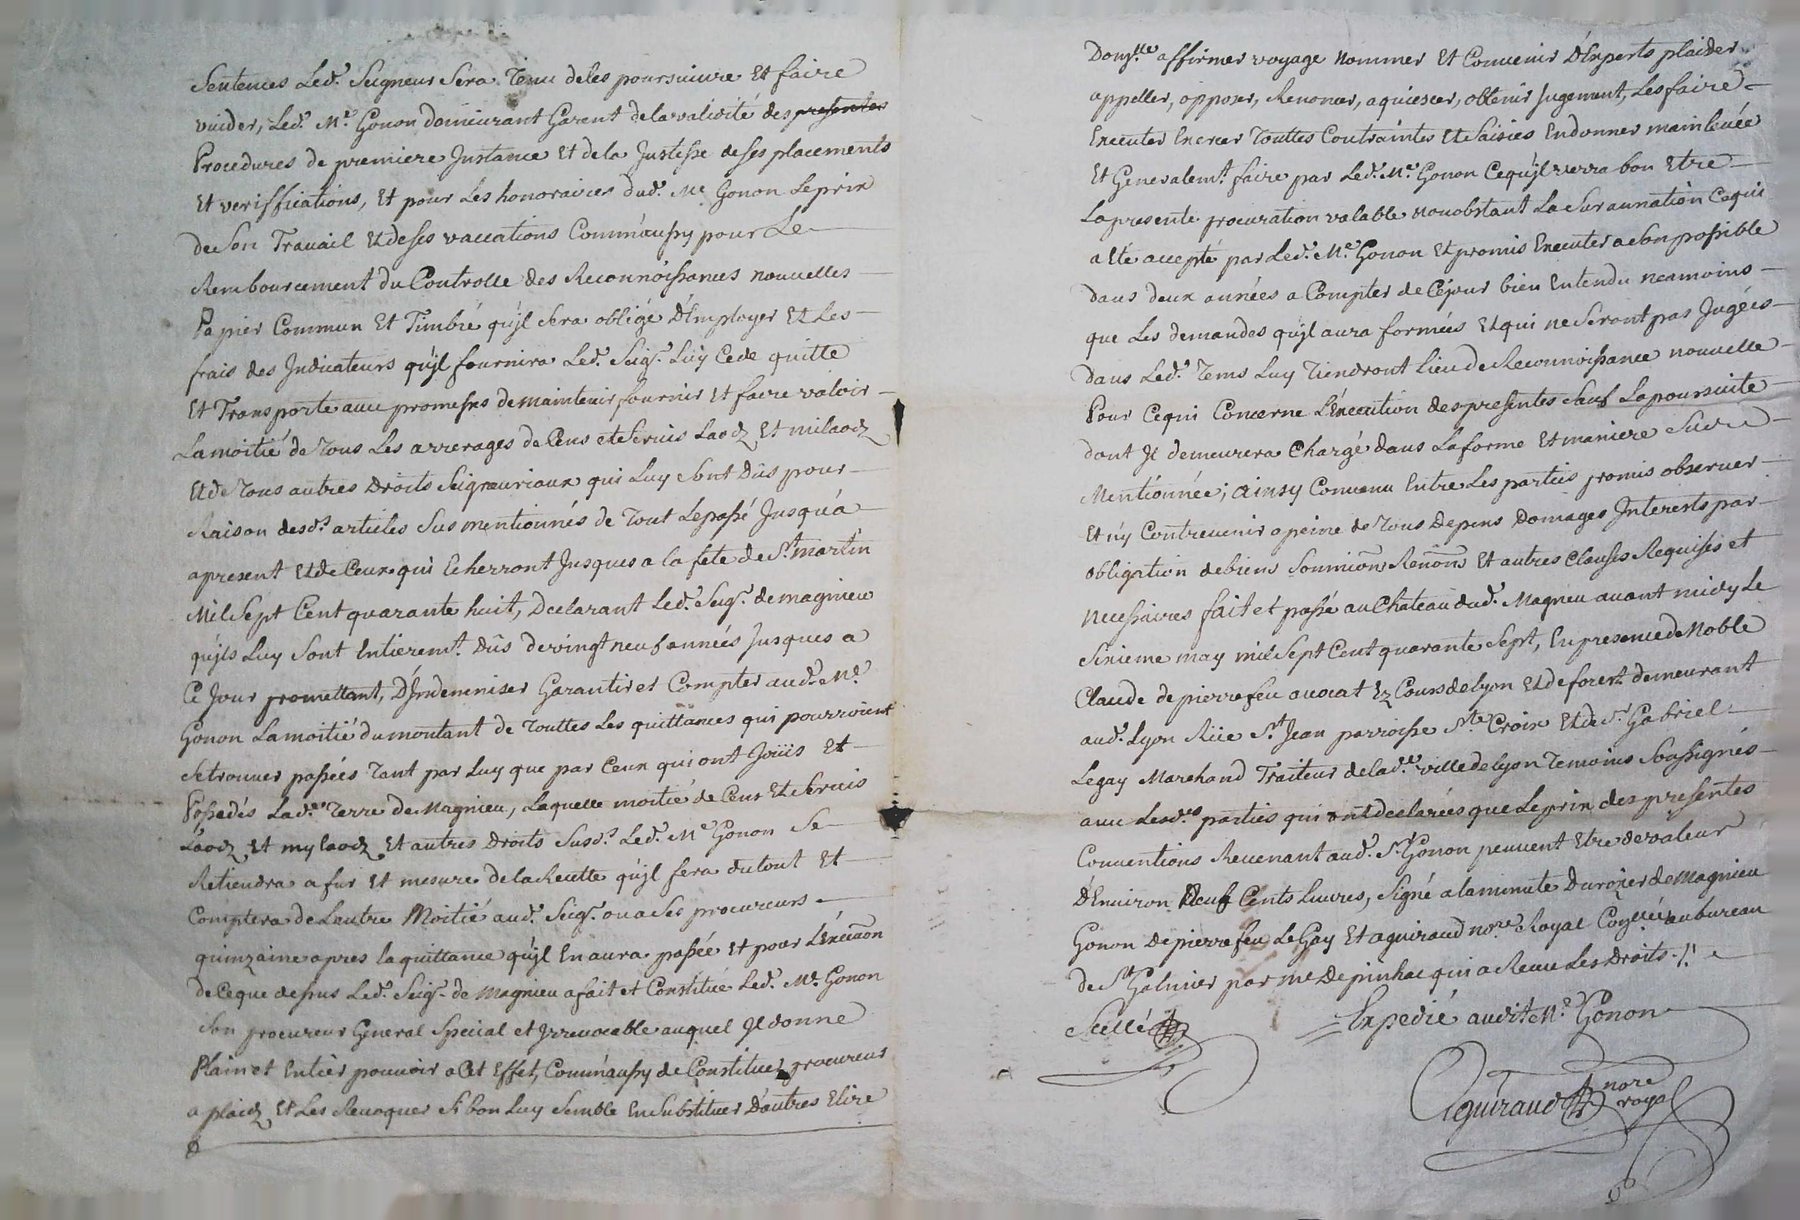 Sentences Led.t Seigneur Sera Tenu deles poursuivre Et faire
vuider, Led.t M.e Gonon demeurant Garent dela validité des presentes
Procedures de premiere Instance Et dela Justesse deses placements
Et veriffications, Et pour Les honoraires dud.t Me Gonon Leprix
deSon Travail Etdeses vaccations Comm'aussy pour Le
Rembourcement du Controlle des Reconnoissances nouvelles
Papier Commun Et Timbré qu'jl Sera obligé D'Employer Et Les
frais des Jndicateurs qu'jl fournira Led.t Seig.r Luy Cede quitte
Et Transporte avec promesses demaintenir fournir Et faire valoir
Lamoitié de Tous Les arrerages deCens etServis Laodz Et milaodz
Etde Tous autres Droits Seigneuriaux qui Luy Sont Dûs pour
Raison desd.s articles Sus mentionnés de Tout Lepassé Jusqu'a
apresent Etde Ceux qui Echerront Jusques a la fete de S.t martin
Mil Sept Cent quarante huit, Declarant Led.t Seig.r de magnieu
qu'jls Luy Sont Entierem.t Dûs devingt neuf années Jusques a
Ce Jour promettant, D'Jndemniser Garantir et Compter aud.t M.e
Gonon Lamoitié dumontant de Touttes Les quittances qui pourroient
Setrouver passées Tant par Luy que par Ceux qui ont Joüis Et
Possedés Lad.e Terre de Magnieu, Laquelle moitié de Cens Et Servis
Laodz Et mylaodz Et autres Droits Susd.s Led.t M.e Gonon Se
Retiendra a fur Et mesure dela Recette qu'jl fera du tout Et
Comptera de Lautre Moitié aud.t Seig.r ou a Ses procureurs
quinzaine apres la quittance qu'jl En aura passée Et pour L'Execution
deCeque dessus Led.t Seig.r de Magnieu afait et Constitué Led.t M.e Gonon
Son procureur General Special et Jrrevocable auquel Jl donne
Plain et Entier pouvoir a Cet Effet, Comm'aussy de Constituer procureurs
a plaidz Et Les Revoquer Si bon Luy Semble En Substituer D'autres Elire
Domy.lle affirmer voyage nommer Et Convenir D'Experts plaider
appeller, opposer, Renoncer, aquiescer, obtenir Jugement, Les faire
Executer Exercer Touttes Contraintes Et Saisies Endonner mainlevée
Et Generalem.t faire par Led.t M.e Gonon Cequ'jl verra bon Etre
La presente procuration valable nonobstant La Surannation Cequi
a Eté accepté par Led.t M.e Gonon Et promis Executer a Son possible
dans deux années a Compter de Cejour bien Entendu neamoins
que Les demandes qu'jl aura formées Et qui ne Seront pas Jugées
dans Led.t Tems Luy Tiendront Lieu de Reconnoissance nouvelle
Pour Cequi Concerne L'Execution des presentes Sauf La poursuite
dont Jl demeurera Chargé dans La forme Et maniere Susd.
Mentionnée; ainsy Convenu Entre Les parties promis observer
Et n'y Contrevenir apeine de Tous Depens Domages Jnterests par
obligation de biens Soumiõns Renõns Et autres Clauses Requises et
necessaires fait et passé au Chateau dud.t Magneu avant midy Le
Sixieme may mil Sept Cent quarante Sept, En presence de Noble
Claude de pierrefeu avocat Ez Cours de lyon Et de forest demeurant
aud.t Lyon Rüe S.t Jean parroisse S.te Croix Et de S.r Gabriel
Legay Marchand Traiteur de lad.e ville de lyon Temoins Soussignés
avec Lesd.es parties qui ont declarées que Leprix des presentes
Conventions Revenant aud.t S.r Gonon peuvent Etre de valeur
D'Environ Neuf Cents Livres, Signé a la minute Durozier de Magnieu
Gonon De pierrefeu Le Gay Et aguiraud no.re Royal Con.llé au bureau
de S.t Galmier par me Depinhac qui a Receu Les Droits ./.
Scellé
Expedié audit M.e Gonon
Aguiraud nore
royal